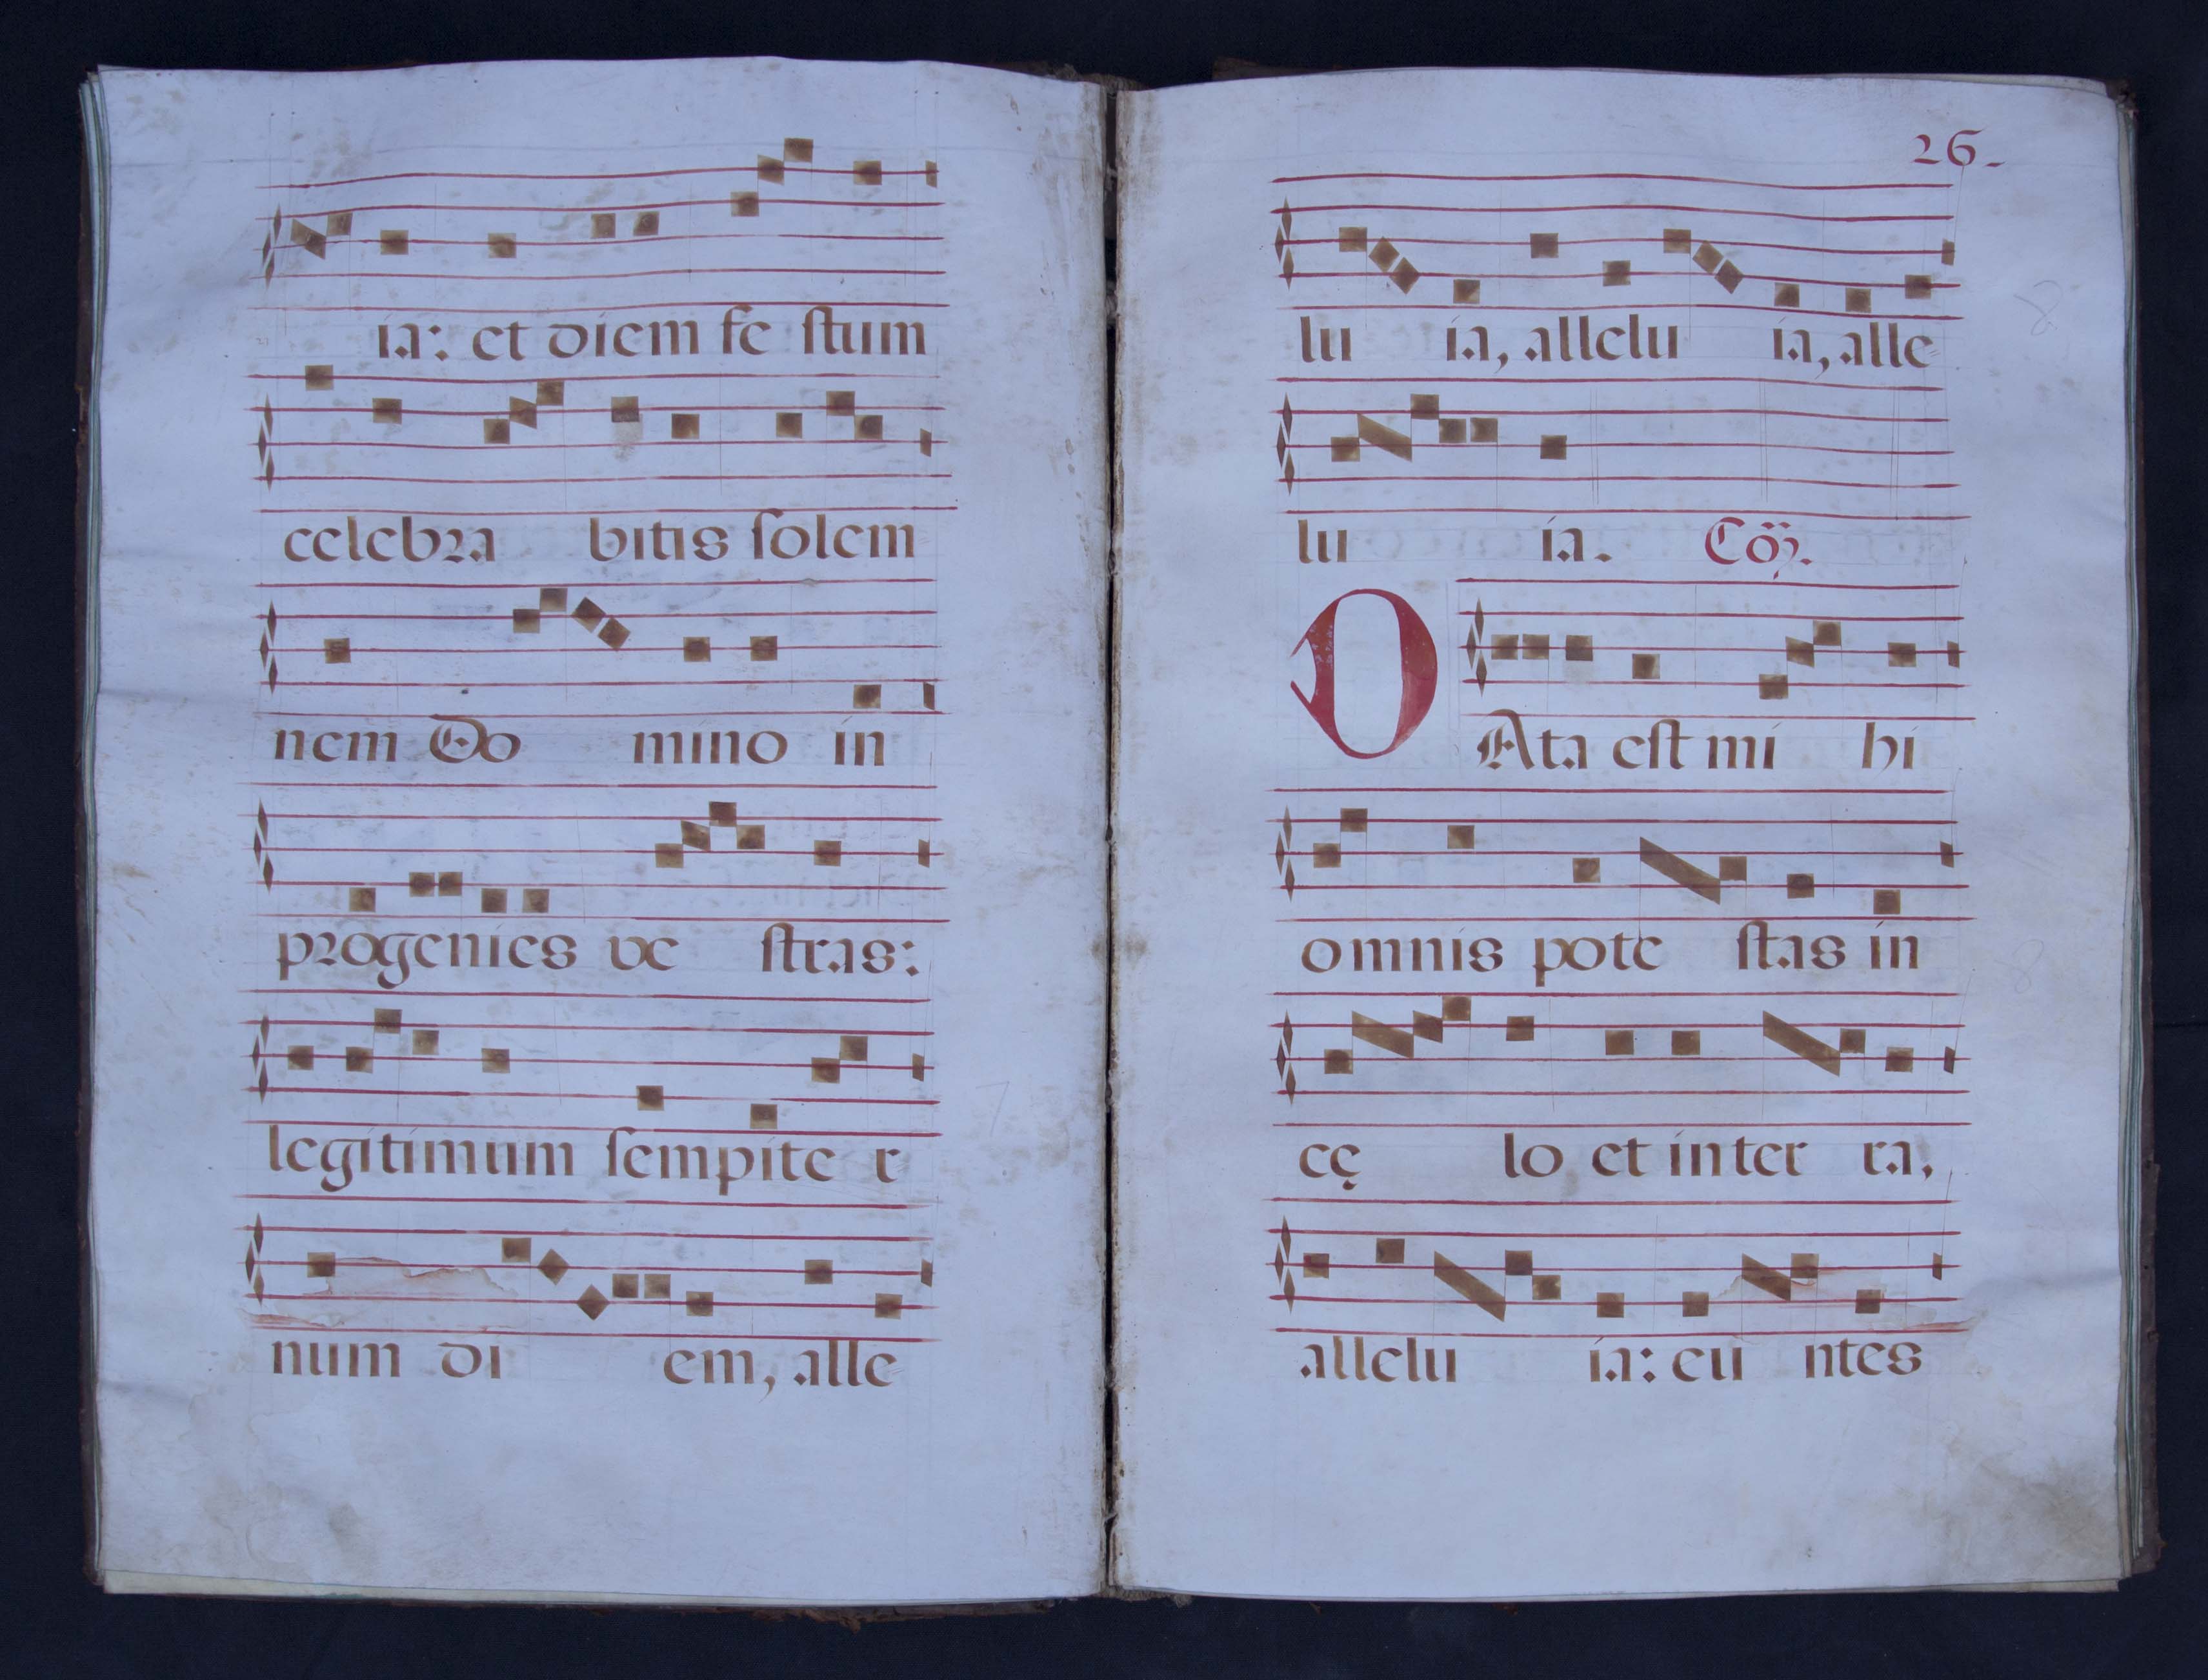 ia: et diem fe stum
celebra bitis solem
nem Do mino in
progenies ve stras:
legitimum sempite r
num di em, alle
26.
lu ia, allelu ia, alle
lu ia. Cõ.
DAta est mi hi
omnis pote stas in
cę lo et in ter ra,
allelu ia: eu ntes